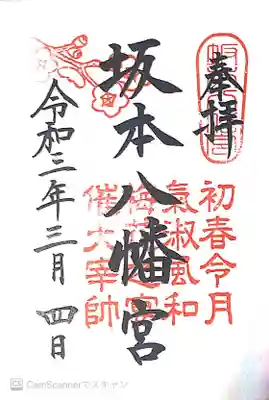 奉拝
初春令月
氣淑風和
坂本八幡宮
梅花之宴
催大宰帥
令和三年三月四日
CS CamScannerでスキャン